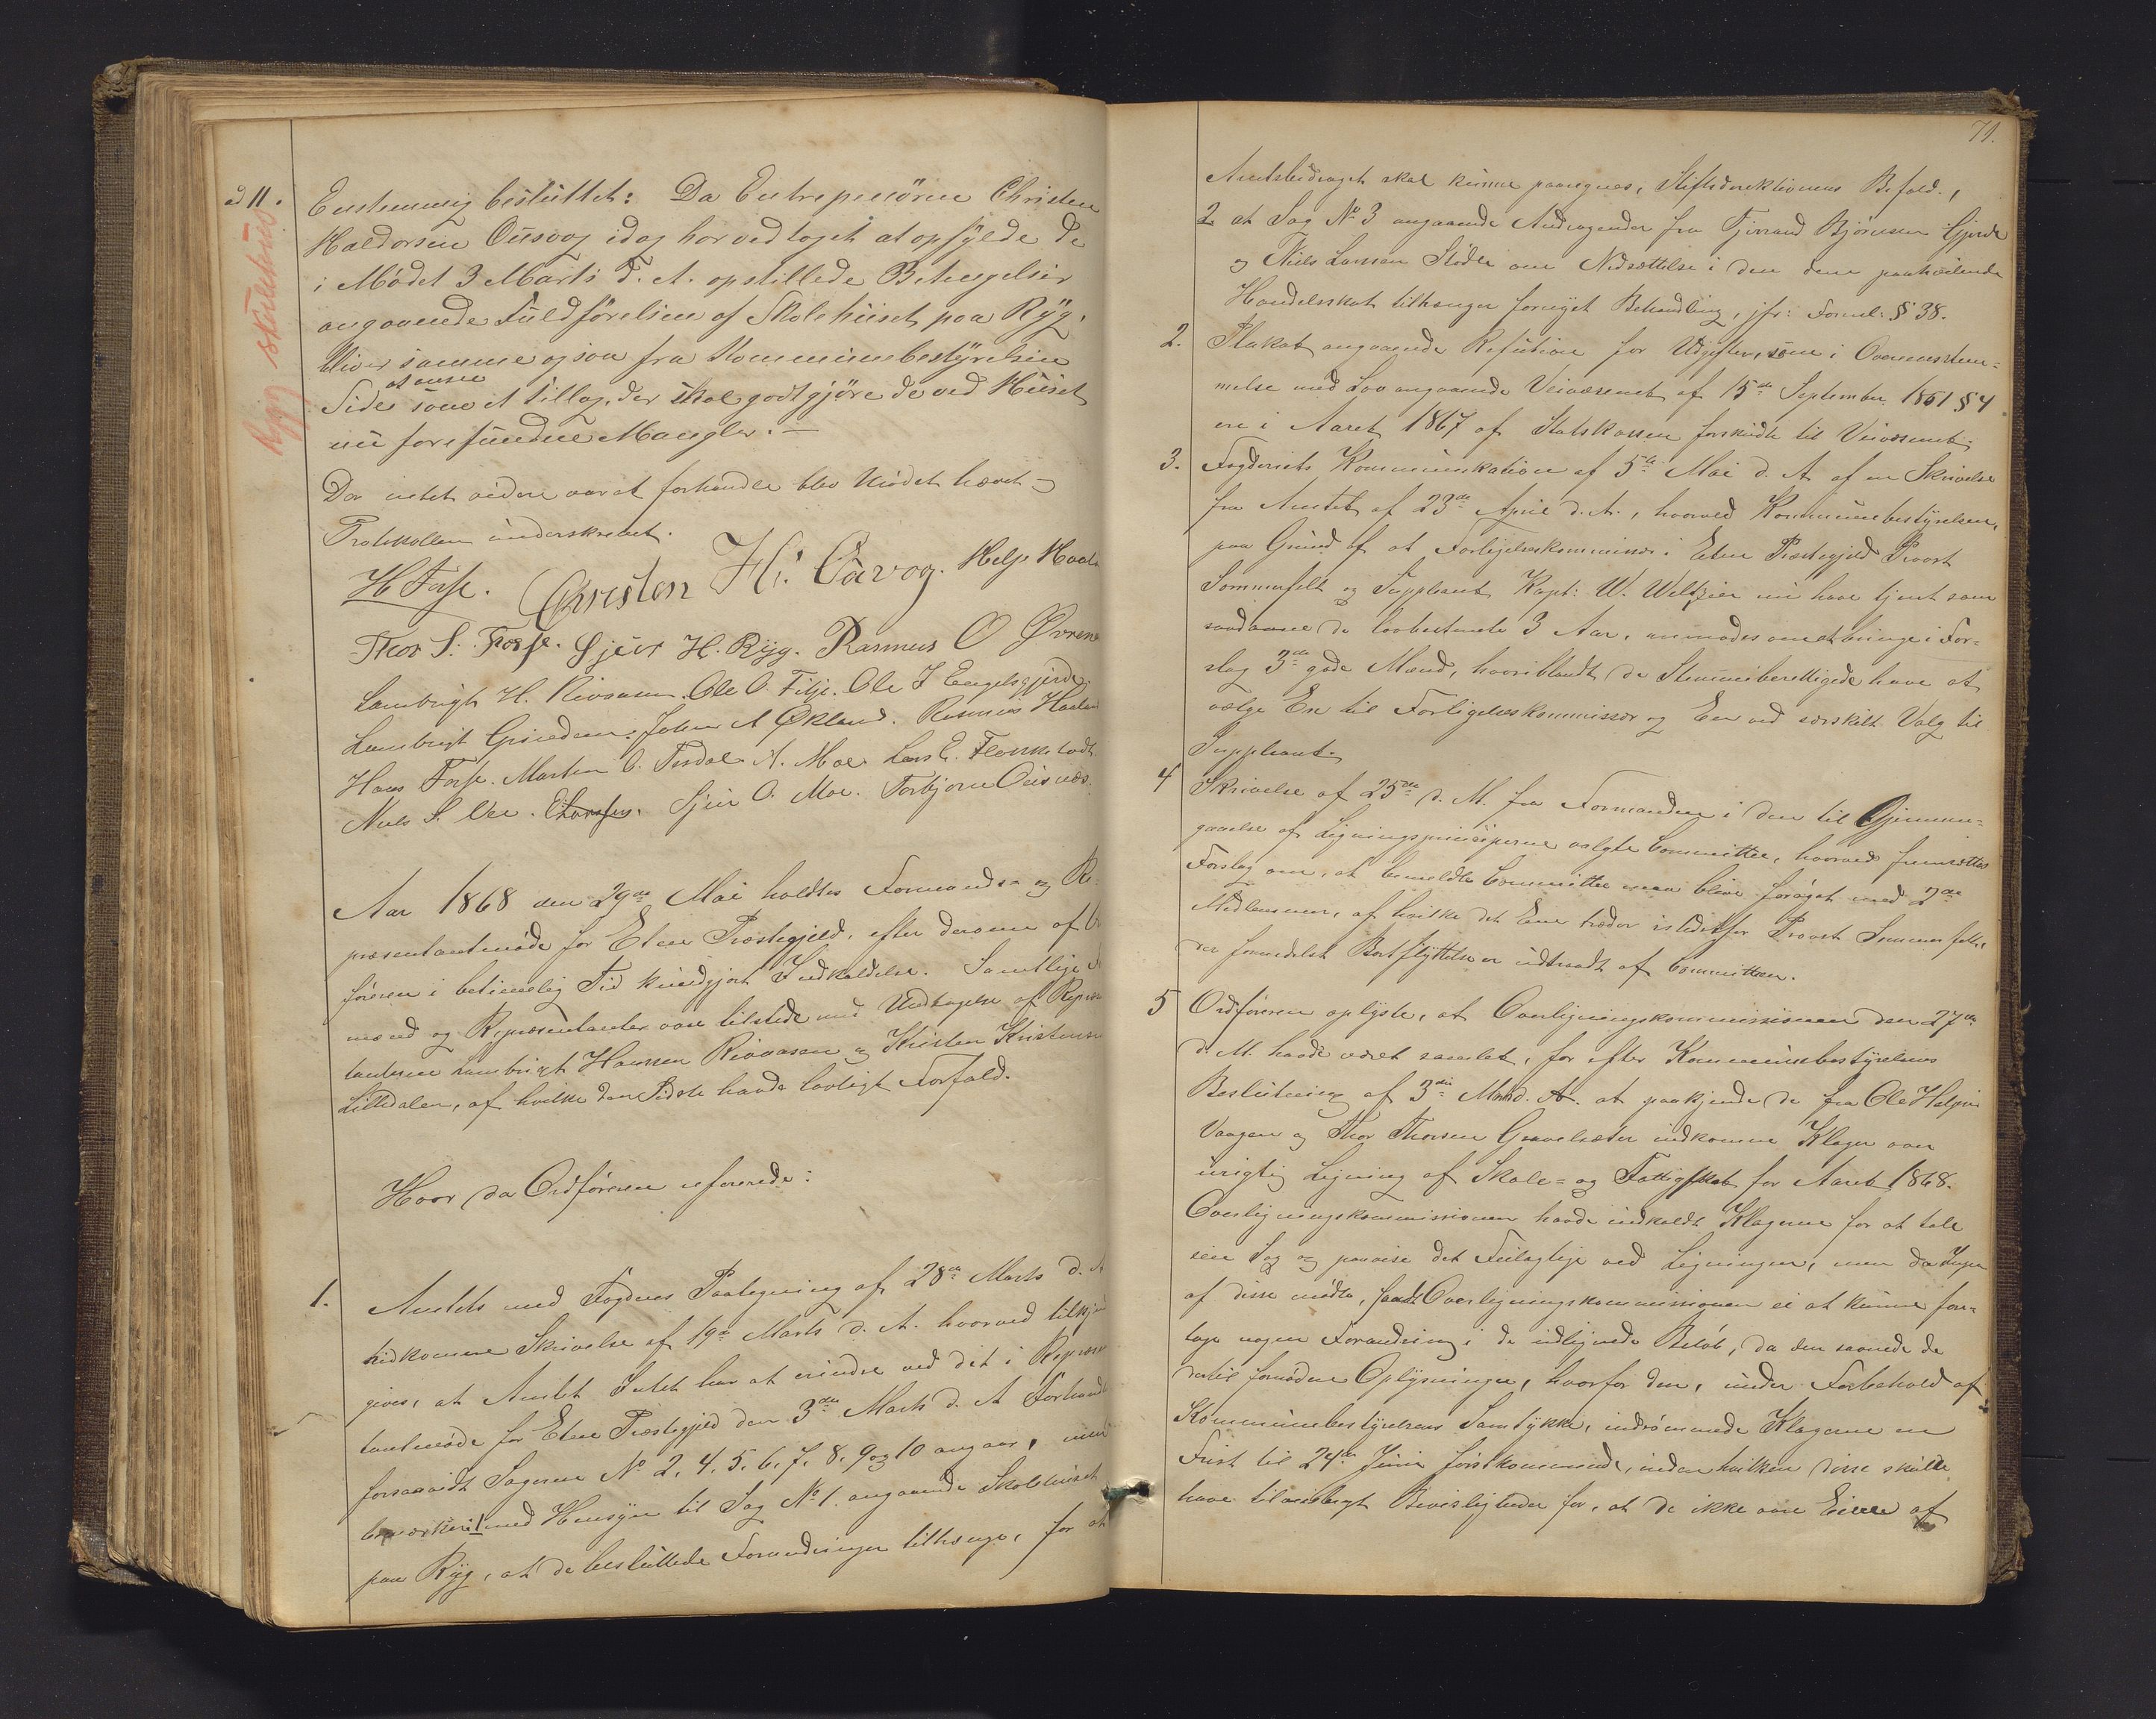 ad 11.
Rygg skulehus
Eenstemmig besluttet: Da Entreprenören Christen
Haldorsen Ousvog idag har vedtaget at opfylde de
i Mödet 3 Marts d. A. opstillede Betingelser
angaaende Fuldförelsen af Skolehuset paa Ryg,
bliver samme ogsaa fra Kommunebestyrelsens
Side at ansee
som et tillæg, der skal godtgjöre de ved Huset
nu forefundne Mangler. —
Da intet videre var at forhandle blev Mödet hævet —
Protokollen underskrevet.
H Forse. Christen H: Oavog. Helje Haal
Thor S. Forse. Sjeur H. Ryg. Rasmus O Øvren
Lambrigt H. Rivoasen. Ole O. Fitje. Ole J Engelsgjerde
Lambrigt Grindem. John A Økland. Rasmus Haaland
Hans Forse. Marten O. Tesdal. A. Moe Lars E.
Niels S. Sjur O. Moe. Torbjørn Ousnæs.
Aar 1868 den 29de Mai holdtes Formands- og Re-
præsentantmöde for Etne Præstegjeld, efter derom af O
föreren i betimelig Tid kundgjort Indkaldelse. Samtlige
mænd og Repræsentanter vare tilstede med Undtagelse af Repræ
tanterne Lambrigt Hansen Rivoasen og Kristen Kristensen
Litledalen, af hvilke den Sidste havde lovligt Forfald.
Hvor da Ordföreren refererede:
1. Amtets med Fogdens Paategning af 28de Marts d. A
hidkomne Skrivelse af 19de Marts d. A. hvorved tilkjende
gives, at Amtet Intet har at erindre ved det i Repræsen
tantmöde for Etne Præstegjeld den 3die Marts d. A Forhand
forsaavidt Sagerne No 2. 4. 5. 6. 7. 8. 9 og 10 angaar, men
bemærker 1 med Hensyn til Sag No 1. angaaende Skolehuset
paa Ryg, at de besluttede Forandringer tilhænge, for at
71.
Amtsbidraget skal kunne paaregnes, Stiftsdirektionens Befald.,
2 at Sag No 3 angaaende Andragender fra Björnsen Gjerde
og Niels Larsen Stödle om Nedsættelse i den dem paahvilende
Handelsskat tilhænger fornyet Behandling, jfr: Forml: § 38.
2. Plakat angaaende Refution for Udgifter, som i Overensstem-
melse med Lov angaaende Veivæsenet af 15de September 1851 § 4
ere i Aaret 1867 af Statskassen forskudte til Veivæsenet.
3. Fogderiets Kommunikation af 5te Mai d. A. af en Skrivelse
fra Amtet af 23de April d. A., hvorved Kommunebestyrelsen,
paa Grund af at Forligelseskommissær i Etne Præstegjeld Provst
Sommerfelt og Suppleant Kapt: W. Weltzien nu have tjent som
saadanne de lovbestemte 3 Aar, anmodes om at bringe i For-
slag 3de gode Mænd, hvoriblandt de Stemmeberettigede have at
vælge En til Forligelseskommissær og Een ved særskilt Valg til
Suppleant.
4 Skrivelse af 25de d. M. fra Formanden i den til Gjennem-
gaaelse af Ligningsprincipperne valgte Committee, hvorved fremsættes
Forslag om, at bemeldte Committee maa blive forøget med 2de
Medlemmer, af hvilke det Ene træder istedetfor Provst Sommerfelt,
der formedelst Bortflyttelse er udtraadt af Committeen.
5 Ordföreren oplyste, at Overligningskommissionen den 27de
d. M. havde været samlet, for efter Kommunebestyrelsens
Beslutning af 3die Marts d. A. at paakjende de fra Ole Helgesen
Vaagen og Thor Thorsen Gravelsæter indkomne Klager over
urigtig Ligning af Skole- og Fattigskat for Aaret 1868.
Overligningskommissionen havde indkaldt Klagerne for at tale
sin Sag og paavise det Feilagtige ved Ligningen, men da Ingen
af disse mödte, fandt Overligningskommissionen ei at kunne fore-
tage nogen Forandring i de udlignede Belöb, da den savnede de
dertil fornödne Oplysninger, hvorfor den, under Forbehold af
Kommunebestyrelsens Samtykke, indrömmede Klagerne en
Frist til 24de Juni förstkommende, inden hvilken disse skulle
have tilveiebragt Bevisligheder for, at de ikke vare Eiere af